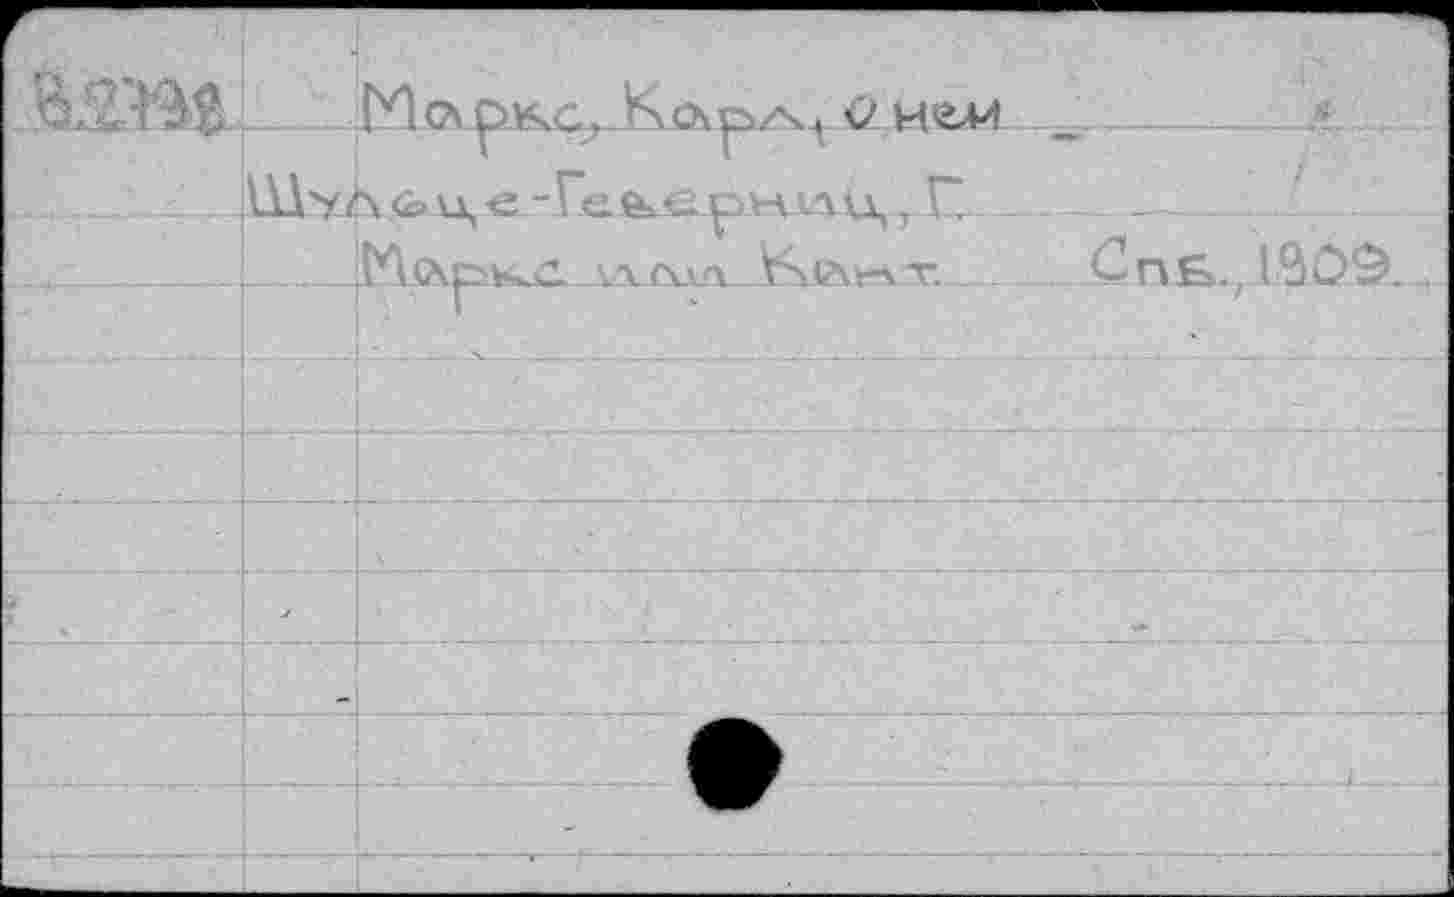 Маркс, Карл, о нем
Шульце-Геверниц, Г.
Маркс или Кант. Спб., 1909.